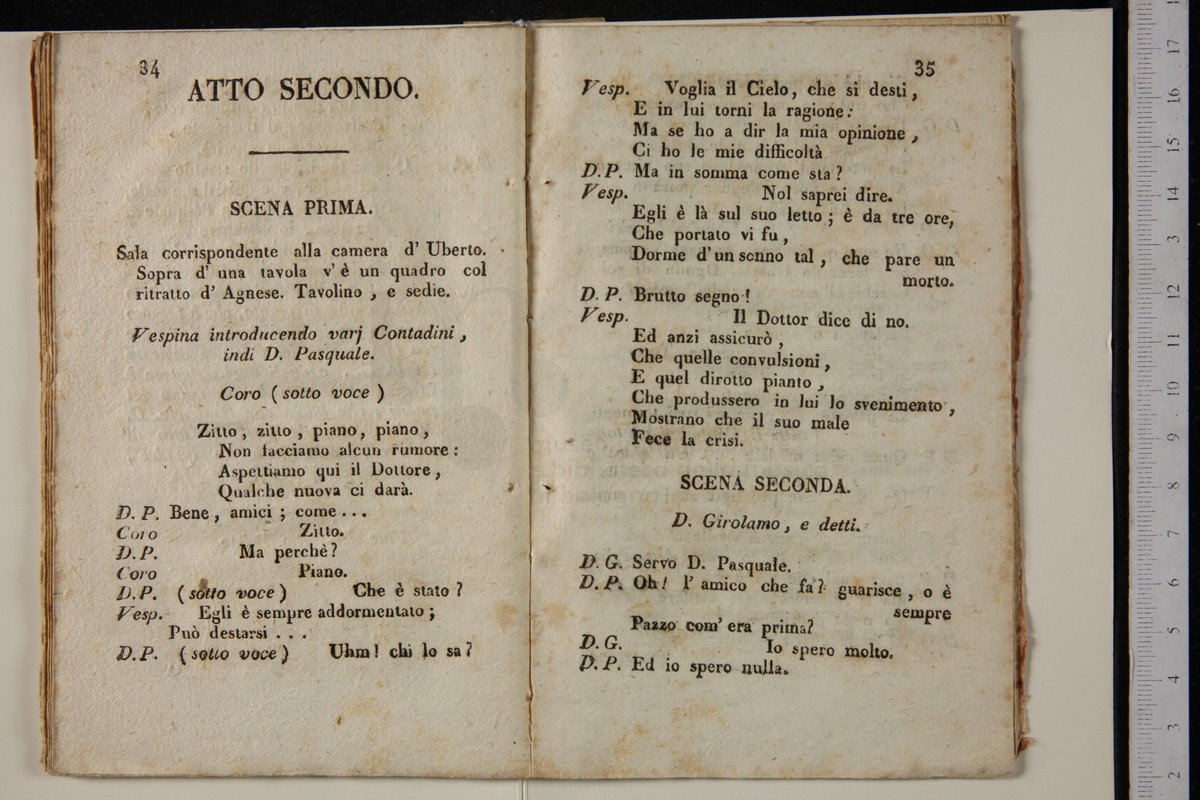 34
ATTO SECONDO.
SCENA PRIMA.
Sala corrispondente alla camera d' Uberto.
Sopra d' una tavola v' è un quadro col
ritratto d' Agnese. Tavolino , e sedie.
Vespina introducendo varj Contadini ,
indi D. Pasquale.
Coro ( sotto voce )
Zitto , zitto , piano , piano ,
Non facciamo alcun rumore :
Aspettiamo qui il Dottore ,
Qualche nuova ci darà.
D. P. Bene , amici ; come . . .
Coro Zitto.
D.P. Ma perchè ?
Coro Piano.
D.P. ( sotto voce ) Che è stato ?
Vesp. Egli è sempre addormentato ;
Può destarsi . . .
D.P. ( sotto voce ) Uhm ! chi lo sa ?
35
Vesp. Voglia il Cielo , che si desti ,
E in lui torni la ragione :
Ma se ho a dir la mia opinione ,
Ci ho le mie difficoltà
D.P. Ma in somma come sta ?
Vesp. Nol saprei dire.
Egli è là sul suo letto ; è da tre ore,
Che portato vi fu ,
Dorme d' un sonno tal , che pare un
morto.
D. P. Brutto segno !
Vesp. Il Dottor dice di no.
Ed anzi assicurò ,
Che quelle convulsioni ,
E quel dirotto pianto ,
Che produssero in lui lo svenimento ,
Mostrano che il suo male
Fece la crisi.
SCENA SECONDA.
D. Girolamo , e detti.
D. G. Servo D. Pasquale.
D. P. Oh ! l' amico che fa ? guarisce , o è
sempre
Pazzo com' era prima?
D. G. Io spero molto.
D. P. Ed io spero nulla.
17
16
15
14
13
12
11
10
9
8
7
6
5
4
3
2